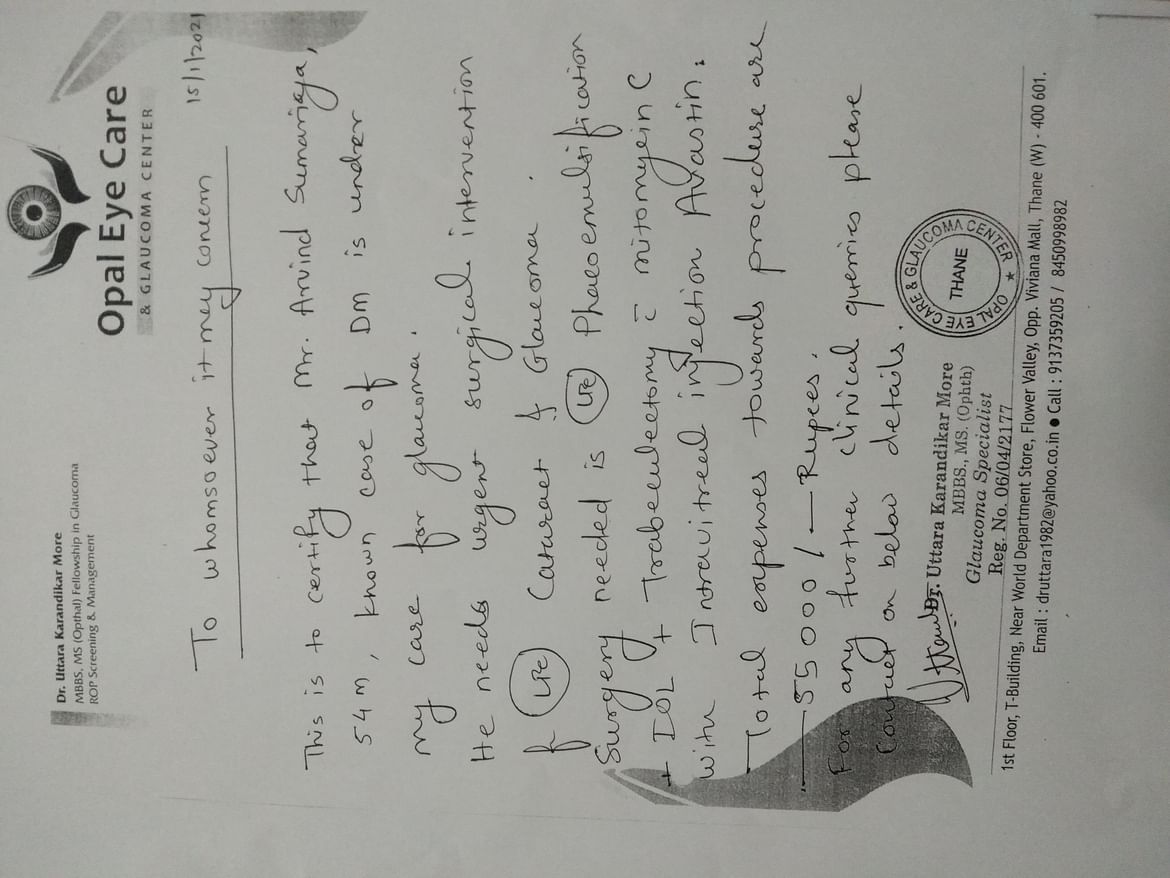 Dr. Uttara Karandikar More
MBBS, MS (Opthal) Fellowship in Glaucoma
ROP Screening & Management
Opal Eye Care
& GLAUCOMA CENTER
15/1/2021
To whomsoever it may concern
This is to certify that Mr. Arvind Sumariya,
54 m, known case of DM is under
my care for glaucoma.
He needs urgent surgical intervention
for (LE) Cataract & Glaucoma.
Surgery needed is (LE) Phacoemulsification
+ IOL + Trabeculectomy c̄ mitomycin C
with Intravitreal injection Avastin.
Total expenses towards procedure are
55000/— Rupees.
For any further clinical queries please
contact on below details.
Dr. Uttara Karandikar More
MBBS., MS. (Ophth)
Glaucoma Specialist
Reg. No. 06/04/2177
OPAL EYE CARE & GLAUCOMA CENTER ★
THANE
1st Floor, T-Building, Near World Department Store, Flower Valley, Opp. Viviana Mall, Thane (W) - 400 601.
Email : druttara1982@yahoo.co.in ● Call : 9137359205 / 8450998982